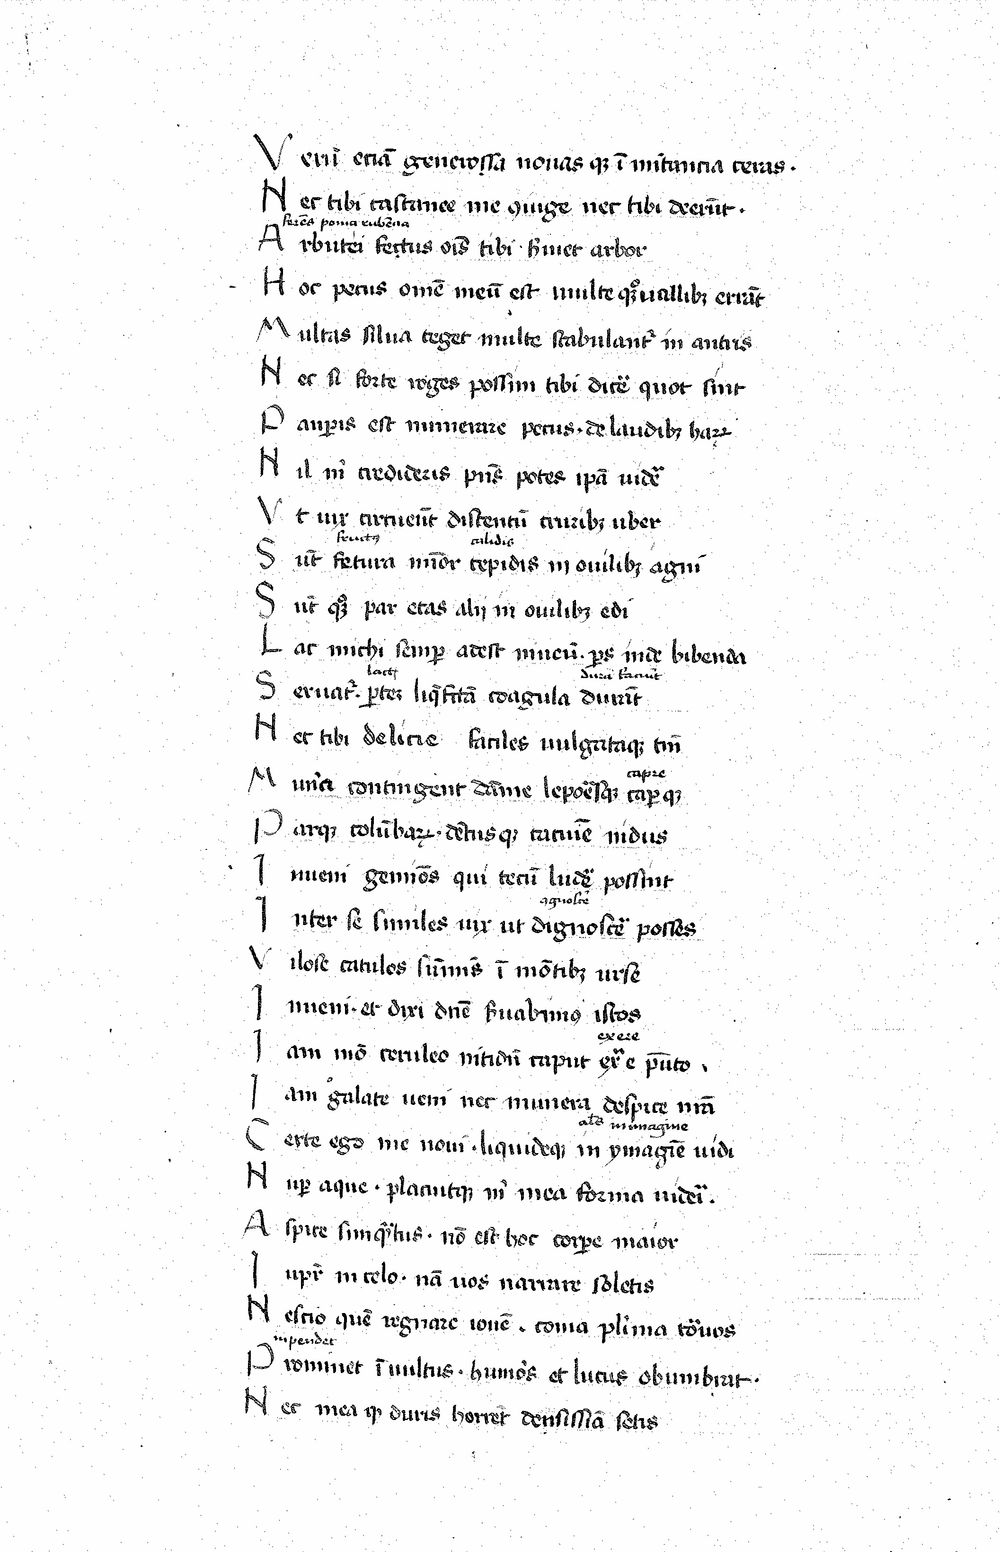 V erū eciā generossa nouas qꝫ ī mītancia ceras .
N ec tibi castanee me ꝯiuge nec tibi deerūt .
ferēs poma rubēcia
A rbutei fectus oīs tibi ẜuiet arbor
H oc pecus omē meū est multe qꝫ uallibꝫ errāt
M ultas silua teget multe stabulantʳ in antris
N ec si forte roges possim tibi dicē quot sint
P aup̄is est numerare pecus . de laudibꝫ haꝝ
N il mͥ credideris p̄ns potes ipā uidē
V t uix circueūt distentū cruribꝫ uber
fructꝰ calidis
S ūt fetura mīor tepidis in ouilibꝫ agni
S ūt qꝫ par etas alij in ouilibꝫ edi
L ac michi semꝑ adest niueū . ꝑs inde bibenda
lactꝭ durā faciūt
S eruatʳ . ꝑteꝫ liq̄fctā coagula durāt
N ec tibi delicie faciles uulgataqꝫ tm̄
capre
M unͣa contingent dāme leporēsqꝫ caꝑqꝫ
P arqꝫ colūbaꝝ . dētusqꝫ cacuīe nidus
I nueni gemīos qui tecū ludē possint
ꝯgnoscē
I nter se similes uix ut dignoscē posses
V ilose catulos sūmīs ī mōtibꝫ urse
I nueni . et dixi dn̄e ẜuabimꝰ istos
exere
I am mō ceruleo nitidū caput ex̄e p̄ūto .
I am galate ueni nec munera despice nrā
als̄ in imagine
C erte ego me noui . liquideqꝫ in ymagīe uidi
N uꝑ aque . placuitqꝫ mͥ mea forma uidēi .
A spice simqͣtus . nō est hoc corꝑe maior
I upr̄ in celo . nā uos narrare soletis
N escio quē regnare iouē . coma plͥma toͬuos
inpendet
P rominet ī uultus . humōs et lucus obumbrat .
N ec mea qꝫ duris horrēt densissīa setis